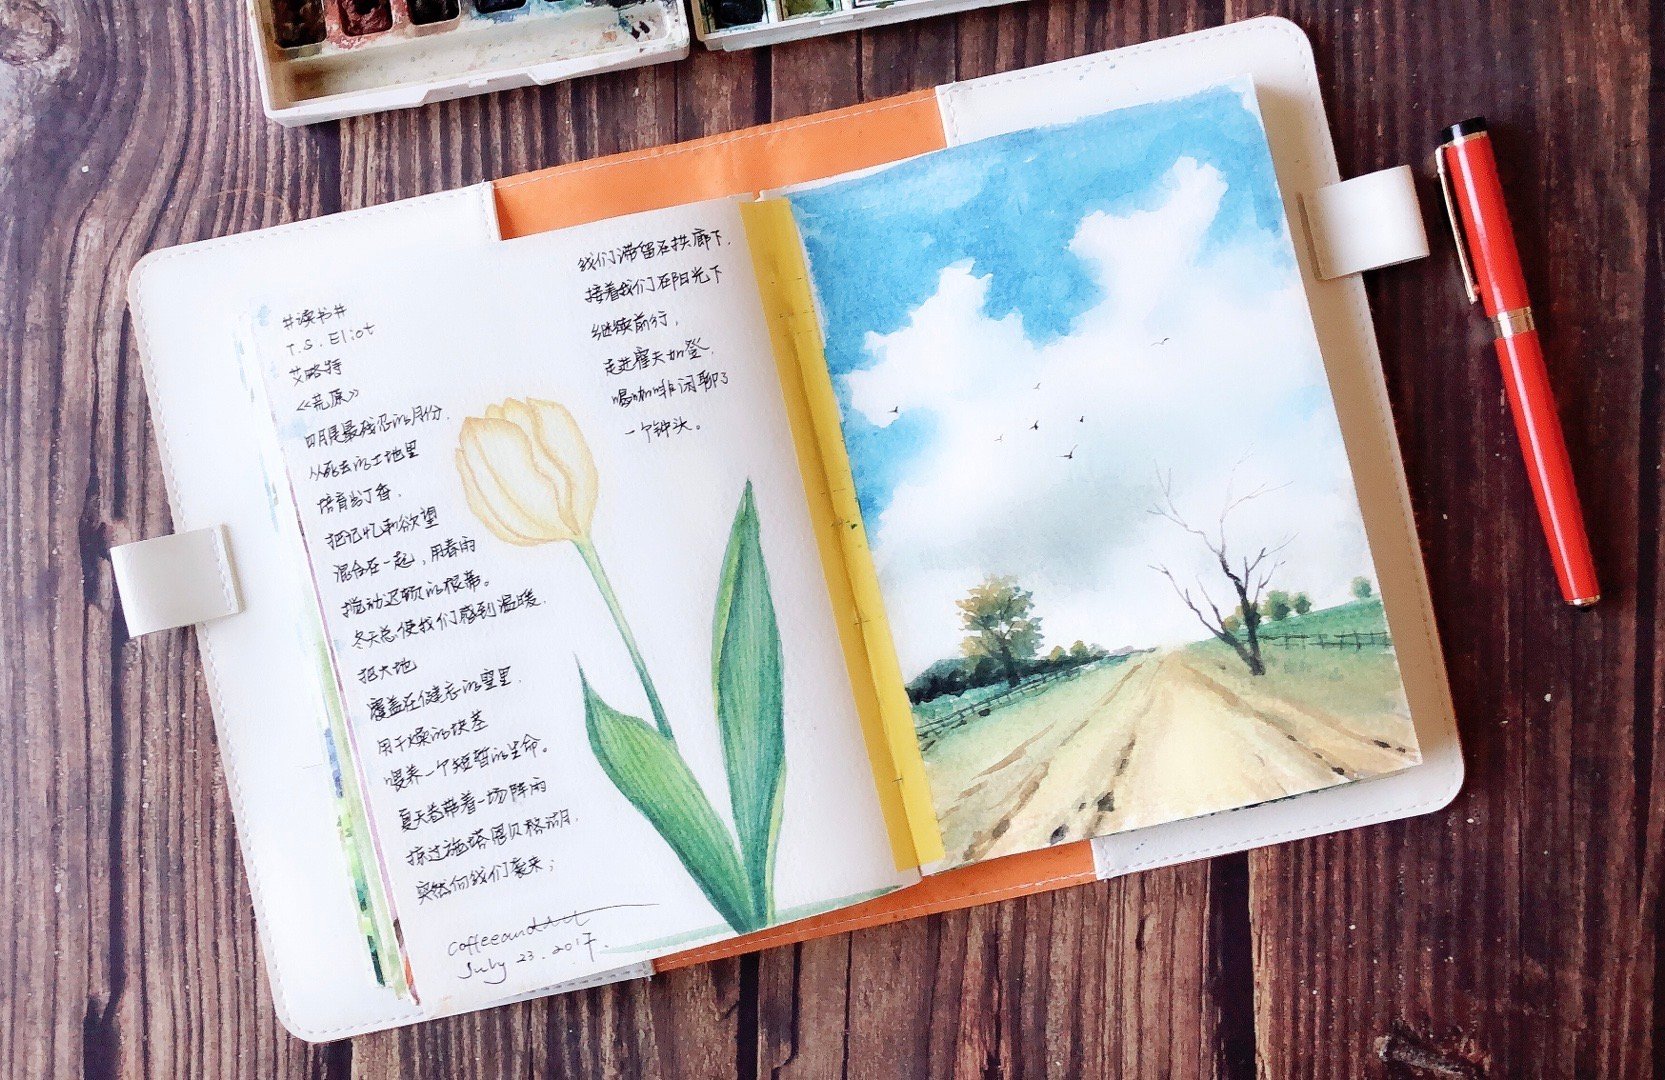 #读书#
T.S. Eliot
艾略特
《荒原》
四月是最残忍的月份，
从死去的土地里
培育出丁香，
把记忆和欲望
混合在一起，用春雨
搅动迟顿的根蒂。
冬天总使我们感到温暖，
把大地
覆盖在健忘的雪里，
用干燥的块茎
喂养一个短暂的生命。
夏天卷带着一场阵雨
掠过施塔恩贝格湖，
突然向我们袭来；
我们滞留在拱廊下，
接着我们在阳光下
继续前行，
走进霍夫加登，
喝咖啡闲聊了
一个钟头。
coffeeandart
July 23. 2017.